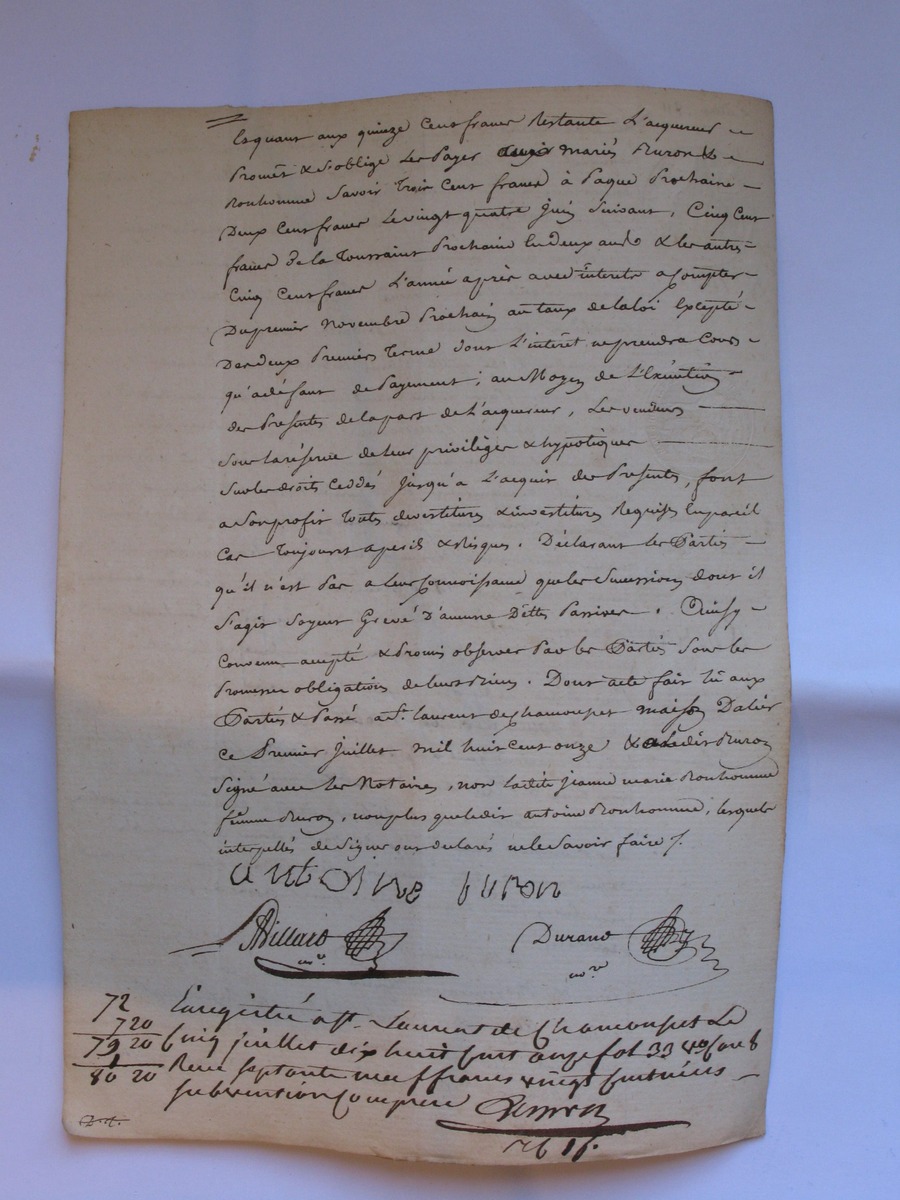 Et quant aux quinze Cent francs Restants L'acquereur
Promet & s'oblige Les Payer auxd. mariés Buron &
Bonhomme Savoir Trois Cent francs à Paque Prochaine
Deux Cent francs Le vingt quatre Juin Suivant, Cinq Cent
francs de la Toussaint Prochaine En deux ans & les autres
Cinq Cent francs L'année après avec intérêts a Compter
Du premier Novembre Prochain au taux de la loi Excepté
Des deux Premiers Terme dont L'intérêt ne prendra Cours
qu'a défaut de Payement; au Moyen de L'Exécution
des Presentes de la part de L'acquereur, Les vendeurs
Sous la réserve de leur privilèges & hypotèques
Sur les droits Ceddés Jusqu'a L'acquit des Presents, font
a Son profit Touts devestitures & investitures Requises En pareil
Cas Toujours a perils & Risques. Déclarant les Parties
qu'il n'est Pas a leur Connoissance que les Successions dont il
S'agit Soyent Grevé D'aucune Dettes Passives. Ainsy
Convenu accepté & Promis observer Par les Parties Sous les
Promesses obligations de leurs Biens. Dont acte fait lû aux
Parties & Passé a St. laurent de Chamousset maison Dalier
Ce Premier Juillet mil huit cent onze & ledit Buron
Signé avec les Notaires, non ladite Jeanne marie Bonhomme
femme Buron, non plus que ledit antoine Bonhomme, lesquels
interpellés de Signer ont declarés ne le Savoir faire /.
antoine buron
Billard Durand
nore. nore
72 Enregistré a St. Laurent de Chamousset Le
7 20 Cinq juillet dix huit Cent onze fol 33 Vo Case 8
79 20 Reçu Septante neuf francs vingt Centimes
80 20 Subvention Comprise